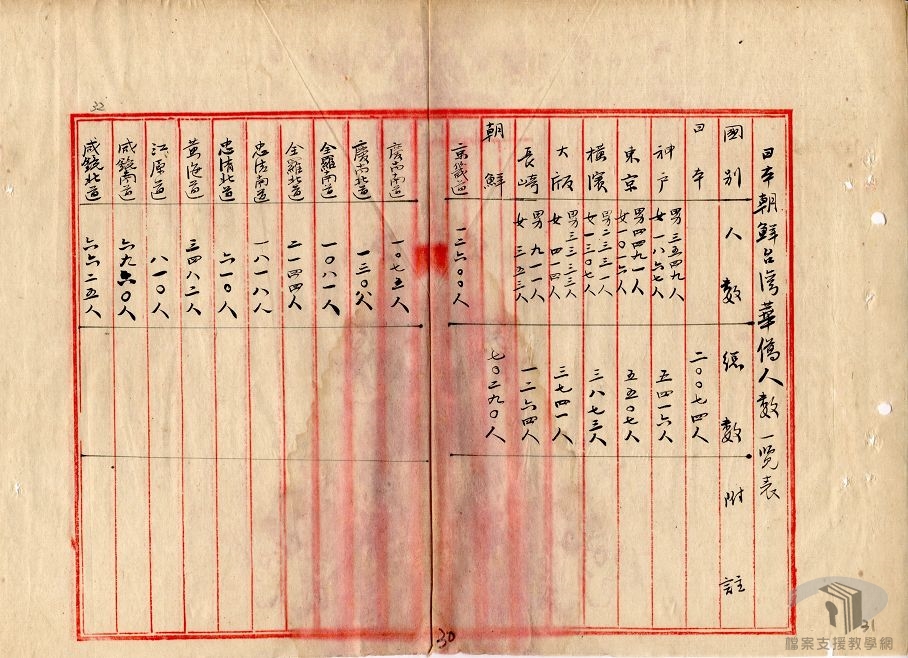 日本朝鮮台灣華僑人數一覽表
國別 人數 總數 附註
日本 二〇〇七四人
神戶 男三五四九人 五四一六人
女一八六七人
東京 男四四九一人 五五〇七人
女一〇一六人
橫濱 男二三三一人 三八七三人
女一三〇七人
大阪 男三三三三人 三七四一人
女四四人
長崎 男九一一人 一二六四人
女三五三人
朝鮮 七〇二九〇人
京畿道 一二六〇〇人
慶尚南道 一〇七五人
慶尚北道 一三〇八人
全羅南道 一〇八一人
全羅北道 二一四四人
忠清南道 一八一八人
忠清北道 六一〇人
黃海道 三四八二人
江原道 八一〇人
咸鏡南道 六九六〇人
咸鏡北道 六六二五人
32
30
31
檔案支援教學網